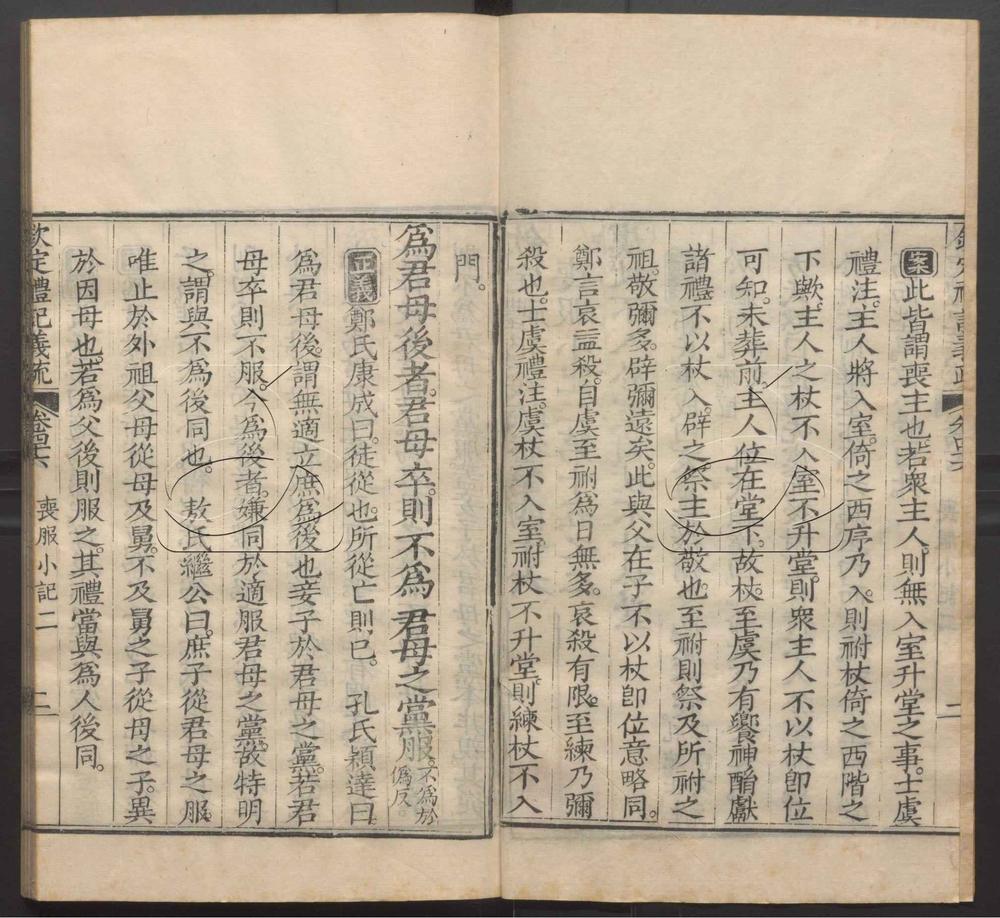 案此皆謂喪主也。若衆主人。則無入室升堂之事。士虞
禮注。主人將入室。倚之西序乃入。則祔杖倚之西階之
下歟。主人之杖不入室不升堂。則衆主人不以杖卽位
可知。未葬前。主人位在堂下。故杖。至虞乃有饗神酳獻
諸禮。不以杖入。辟之祭主於敬也。至祔則祭及所祔之
祖。敬彌多。辟彌遠矣。此與父在子不以杖卽位意略同。
鄭言哀益殺。自虞至祔爲日無多。哀殺有限。至練乃彌
殺也。士虞禮注。虞杖不入室。祔杖不升堂。則練杖不入
門。
爲君母後者。君母卒。則不爲君母之黨服。不爲於僞反。
正義鄭氏康成曰。徒從也。所從亡則已。 孔氏穎達曰。
爲君母後。謂無適立庶爲後也。妾子於君母之黨。若君
母卒則不服。今爲後者。嫌同於適服君母之黨。故特明
之。謂與不爲後同也。 敖氏繼公曰。庶子從君母之服。
唯止於外祖父母從母及舅。不及舅之子從母之子。異
於因母也。若爲父後則服之。其禮當與爲人後同。
欽定禮記義疏 卷四六 喪服小記二 二